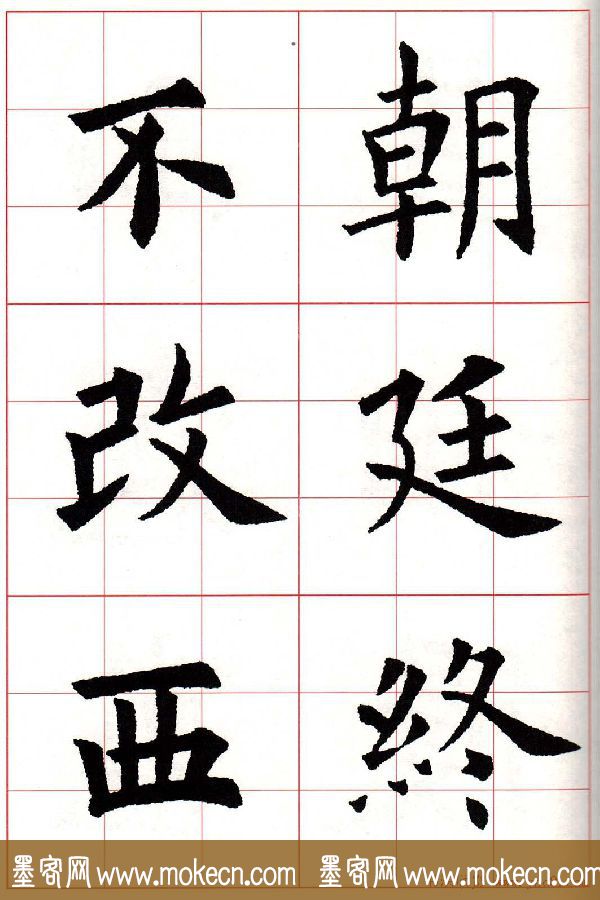 朝廷終
不改西
墨客网 www.mokecn.com 墨客网 www.mokecn.com